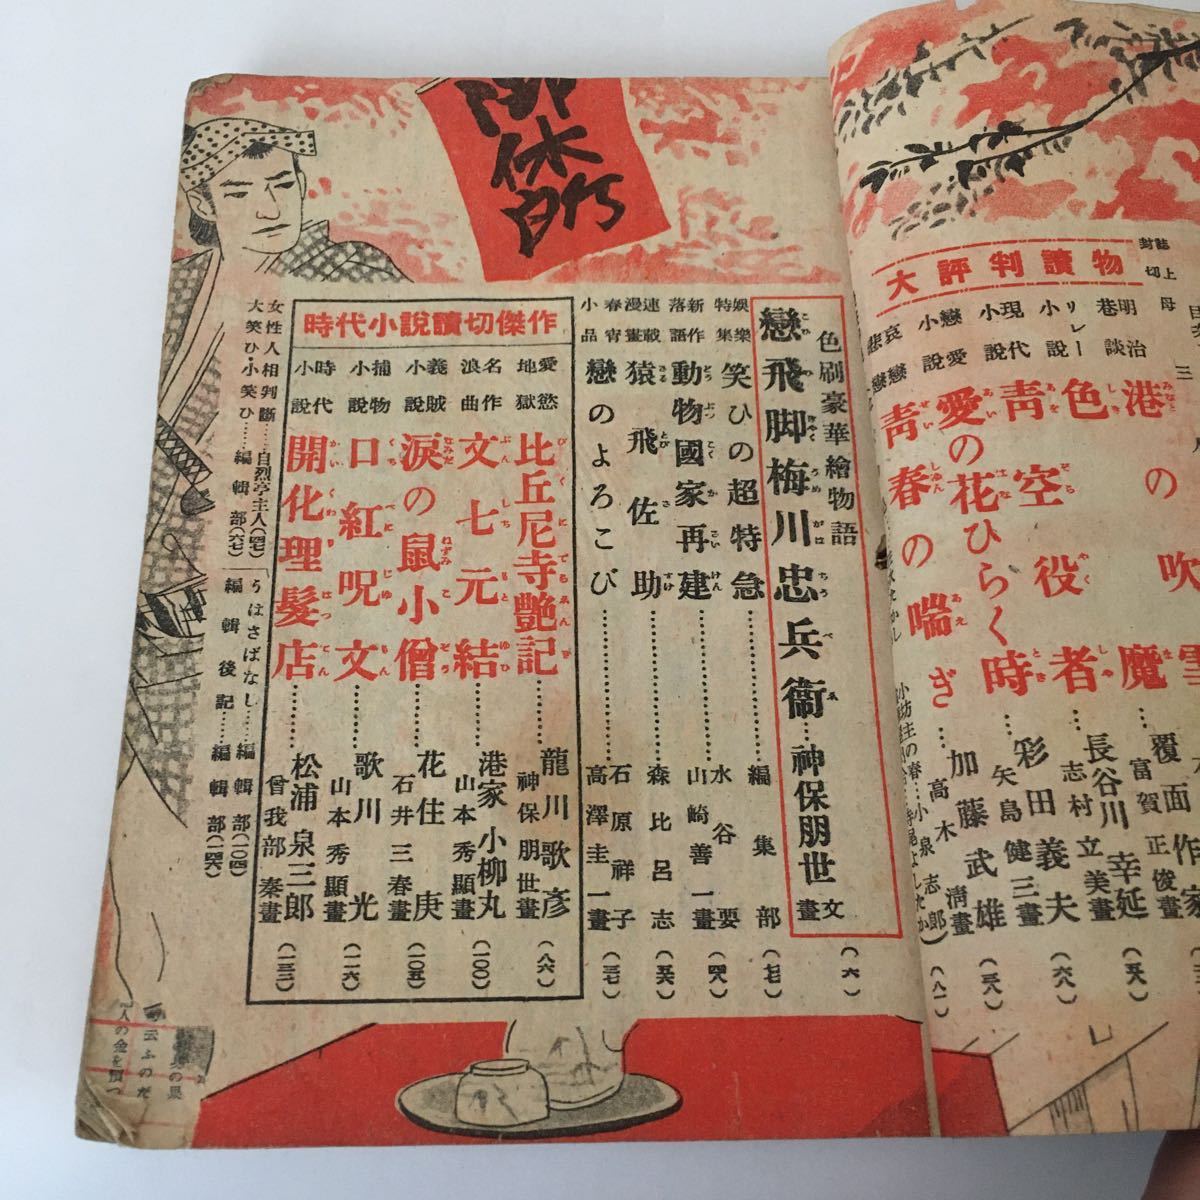 御休所
大評判讀物
誌上
封切
明治
巷談
港の吹雪
覆面作家
富賀正俊畫
リレー
小説
色魔
長谷川幸延
志村立美畫
(五八)
現代
小説
青空役者
彩田義夫
矢島健三畫
(六八)
戀愛
小説
愛の花ひらく時
加藤武雄
高木清畫
(三八)
哀戀
悲戀
青春の喘ぎ
(八一)
色刷豪華繪物語
戀飛脚梅川忠兵衞……神保朋世文畫
(六)
娯樂
特集
笑ひの超特急……編集部
(七七)
新作
落語
動物國家再建……水谷要
山崎善一畫
(四八)
連載
漫畫
猿飛佐助……森比呂志
(五六)
春宵
小品
戀のよろこび……石原祥子
高澤圭一畫
(三七)
時代小説讀切傑作
愛慾
地獄
比丘尼寺艶記……龍川歌彦
神保朋世畫
(八六)
名作
浪曲
文七元結……港家小柳丸
山本秀顯畫
(一〇〇)
義賊
小説
涙の鼠小僧……花住庚
石井三春畫
(一〇五)
捕物
小説
口紅呪文……歌川光
山本秀顯畫
(一一六)
時代
小説
開化理髪店……松浦泉三郎
曾我部泰畫
(一三二)
女性人相判斷……自烈亭主人(四七)
大笑ひ・小笑ひ……編輯部(六七)
うはさばなし……編輯部(一〇四)
編輯後記……編輯部(一四六)